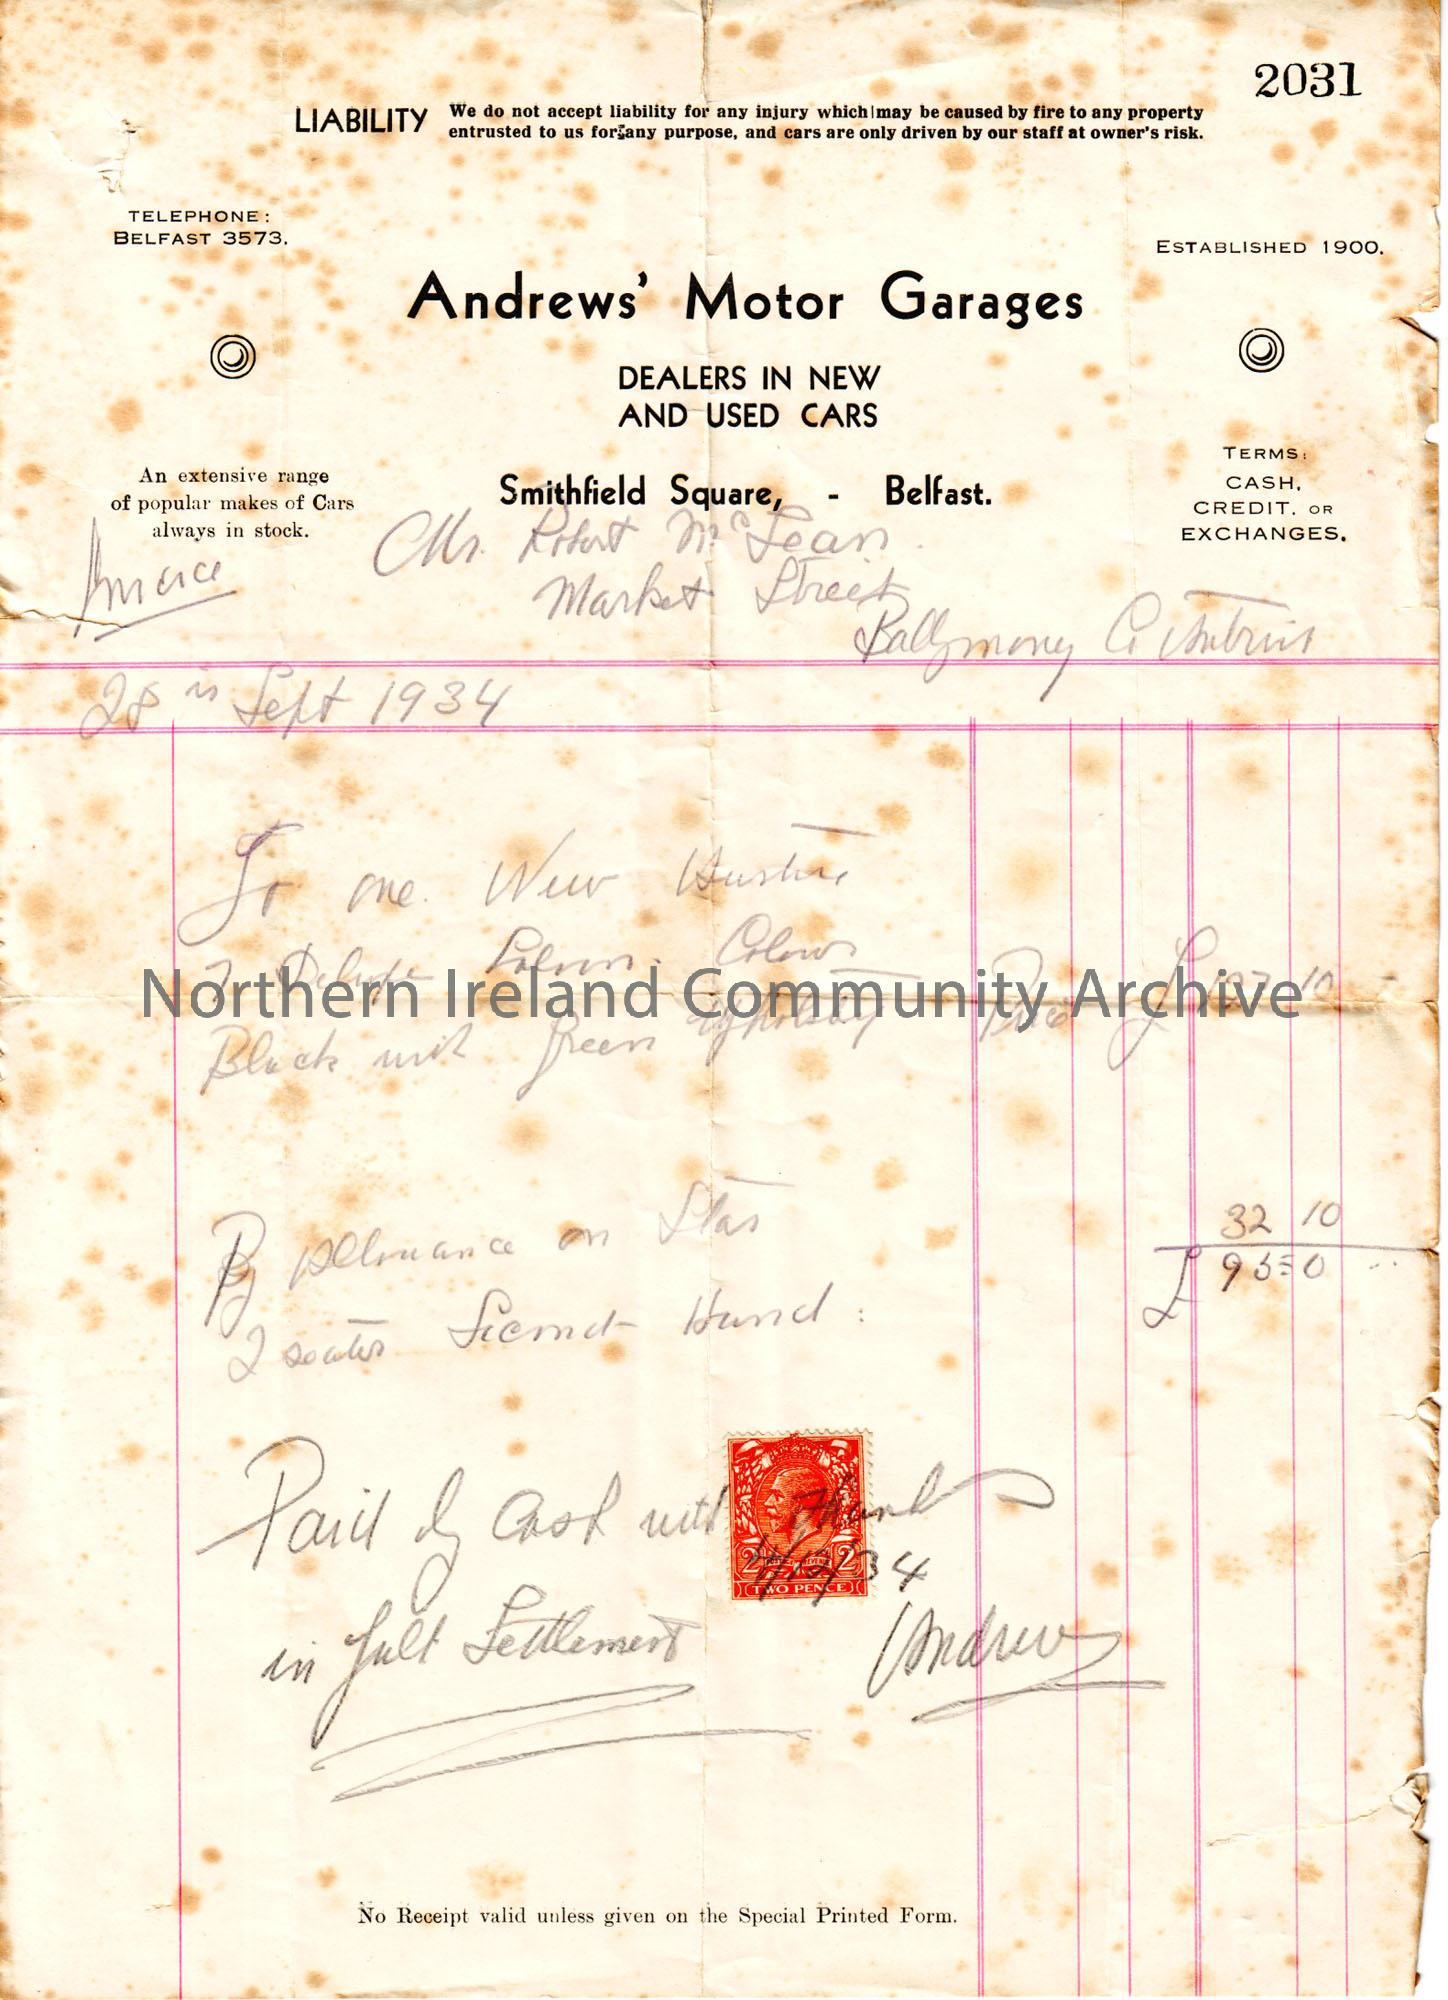 2031
LIABILITY We do not accept liability for any injury which may be caused by fire to any property
entrusted to us for any purpose, and cars are only driven by our staff at owner's risk.
TELEPHONE:
BELFAST 3573.
ESTABLISHED 1900.
Andrews' Motor Garages
DEALERS IN NEW
AND USED CARS
An extensive range
of popular makes of Cars
always in stock.
Smithfield Square, - Belfast.
TERMS:
CASH,
CREDIT. OR
EXCHANGES.
Invoice
Mr. Robert McLean.
Market Street
Ballymoney Co Antrim
28th Sept 1934
To one. New Austin
7 Deluxe Saloon. Colour
Northern Ireland Community Archive
Black with Green Upholstry Price £ 127 10 -
By Allowance on Star
32 10
2 seater Second Hand :
£ 95 = 0 --
Paid by Cash with thanks
TWO PENCE
/12/34
in full Settlement
Andrews
No Receipt valid unless given on the Special Printed Form.